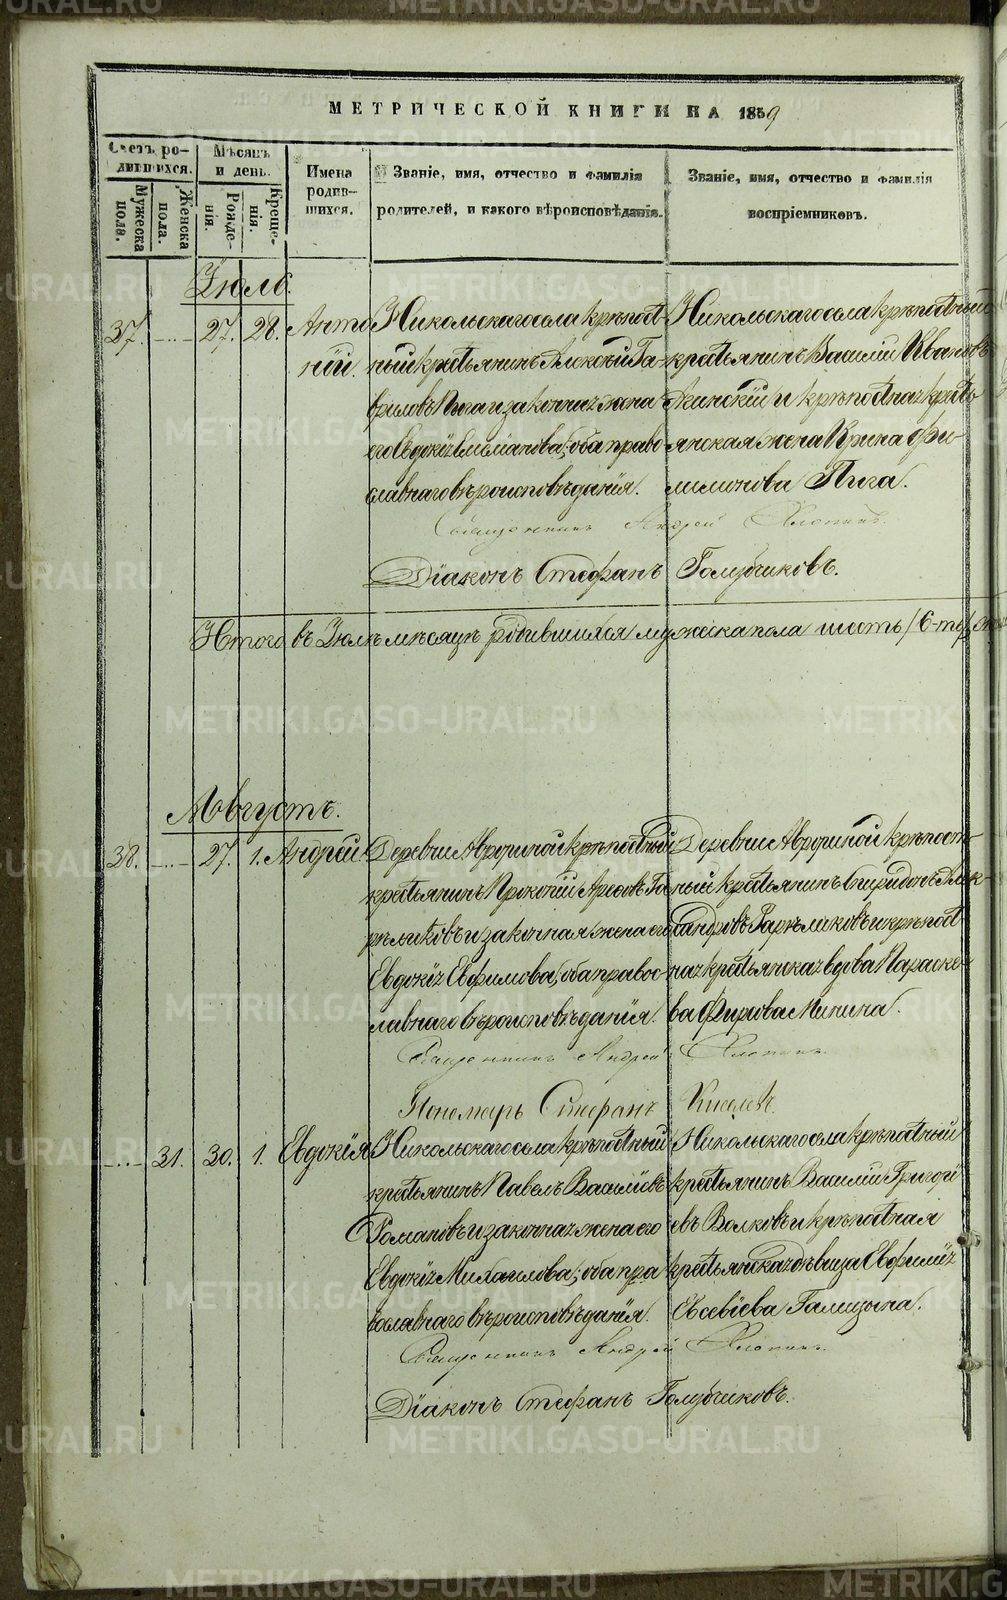 МЕТРИЧЕСКОЙ КНИГИ НА 1859
Счетъ родившихся.
Мужеска пола.
Женска пола.
Мѣсяцъ и день.
Рожденія.
Крещенія.
Имена родившихся.
Званіе, имя, отчество и фамилія
родителей, и какого вѣроисповѣданія.
Званіе, имя, отчество и фамилія
воспріемниковъ.
Іюль.
37. 27. 28. Антоній.
Никольскаго села крѣпост-
ный крестьянинъ Алексѣй Га-
вриловъ Пига и законная жена
его Евдокія; оба право
славнаго вѣроисповѣданія.
Никольскаго села крѣпостный
крестьянинъ Василій Ивановъ
и крѣпостная кресть
янская жена Ирина Фи
лимонова Пига.
Священникъ Андрей
Діаконъ Стефанъ Голубчиковъ.
Итого въ Іюлѣ мѣсяцѣ родившихся мужеска пола шесть /6-ть/
Августъ.
38. 27. 1. Андрей
Деревни Аврочиной крѣпостный
крестьянинъ Прокопій Го
рѣликовъ и законная жена его
Евдокія Евфимова; оба правос
лавнаго вѣроисповѣданія.
Деревни Аврочиной крѣпост-
ный крестьянинъ Спиридонъ Алек-
сандровъ Горѣликовъ и крѣпост
ная крестьянская вдова Параске-
ва Фирсова Минина.
Священникъ Андрей
Пономарь Стефанъ Киселевъ.
31. 30. 1. Евдокія
Никольскаго села крѣпостный
крестьянинъ Павелъ Васильевъ
Романовъ и законная жена его
Евдокія Михаилова; оба пра
вославнаго вѣроисповѣданія.
Никольскаго села крѣпостный
крестьянинъ Василій Григорі
евъ Волковъ и крѣпостная
крестьянская дѣвица Евфимія
Евсевіева Галицына.
Священникъ Андрей
Діаконъ Стефанъ Голубчиковъ.
METRIKI.GASO-URAL.RU